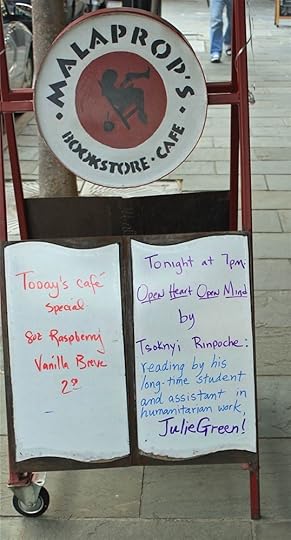 MALAPROP'S
BOOKSTORE·CAFE
Today's café
Special
8oz Raspberry
Vanilla Breve
2.99
Tonight at 7pm.
Open Heart Open Mind
by
Tsoknyi Rinpoche:
reading by his
long-time student
and assistant in
humanitarian work,
Julie Green!